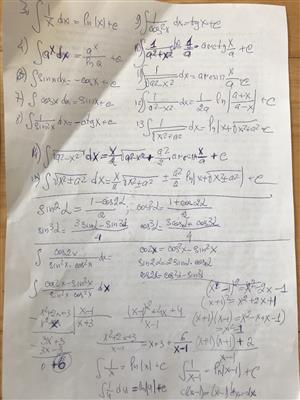 3. ∫ 1/x dx = ln|x|+c
4. ∫ a^x dx = a^x/ln a + c
6. ∫ sinx dx = -cosx + c
7. ∫ cosx dx = sinx + c
8. ∫ 1/sin²x dx = -ctgx + c
9. ∫ 1/cos²x dx = tgx + c
∫ 1/(a²+x²) dx = 1/a arctg x/a + c
∫ 1/√(a²-x²) dx = arcsin x/a + c
∫ 1/(a²-x²) dx = 1/2a ln|(a+x)/(a-x)| + c
13 ∫ 1/√(x²±a²) dx = ln|x+√(x²±a²)| + c
∫ √(a²-x²) dx = x/2 √(a²-x²) + a²/2 arcsin x/a + c
∫ √(x²±a²) dx = x/2 √(x²±a²) ± a²/2 ln|x+√(x²±a²)| + c
sin²α = (1-cos2α)/2 ; cos²α = (1+cos2α)/2
sin³α = (3sinα - sin3α)/4 cos³α = (3cosα + cos3α)/4
∫ cos2x/(sin²x · cos²x) dx = cos2x = cos²x - sin²x
sin2α = 2sinα · cosα
∫ (cos²x - sin²x)/(sin²x · cos²x) dx cos2α = cos²α - sin²α
(x-1)² = x²-2x+1
(x+1)² = x²+2x+1
(x+1)(x-1) = x²-x+x-1
= x²-1
x²+2x+3 | x-1
x²-x | x+3
3x+3
3x-3
0 +6
(x²+2x+3)/(x-1) = x+3 + 6/(x-1)
∫ 1/x = ln|x|+c
∫ 1/u du = ln|u|+c
∫ 1/(x-1) = ln|x-1|+c
d(x-1) = (x-1)' dx = dx